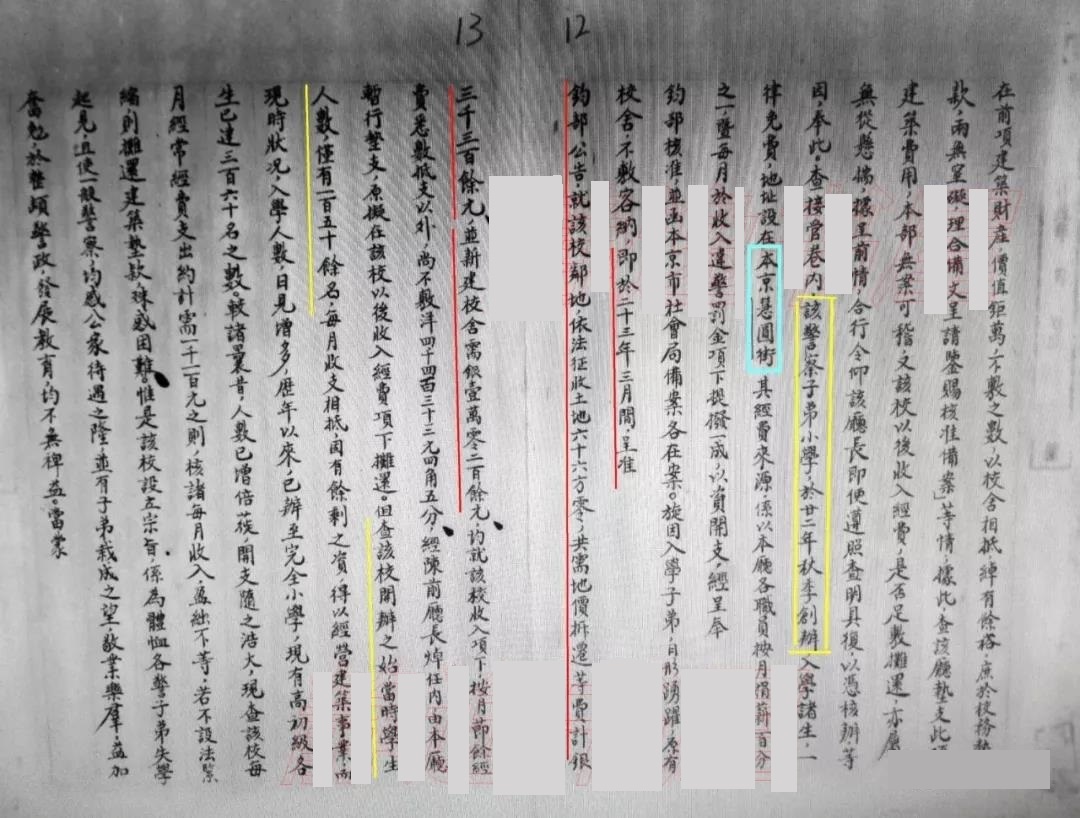 13
12
在前項建築財産價值鉅萬不敷之數以校舍相抵綽有餘裕庶於校務
款兩無窒礙理合備文呈請鑒賜核准備案」等情據此查該廳墊支此
建築費用本部無案可稽又該校以後收入經費是否足敷攤還亦屬
無從懸揣據呈前情合行令仰該廳長即便遵照查明具復以憑核辦等
因奉此查接管卷内該警察子弟小學於廿二年秋季創辦入學諸生一
律免費地址設在本京慧圓街其經費來源係以本廳各職員按月捐薪百分
之一暨每月於收入違警罰金項下提撥一成以資開支經呈奉
鈞部核准並函本京市社會局備案各在案。旋因入學子弟日形踴躍原有
校舍不敷容納即於二十三年三月間呈准
鈞部公告就該校鄰地依法征收土地六十六方零共需地價拆遷等費計銀
三千三百餘元並新建校舍需銀壹萬零二百餘元均就該校收入項下按月節餘經
費悉數抵支以外尚不敷洋四千四百三十三元四角五分經陳前廳長焯任内由本廳
暫行墊支原擬在該校以後收入經費項下攤還。但查該校開辦之始當時學生
人數僅有一百五十餘名每月收支相抵固有餘剩之資得以經營建築事業而
現時狀況入學人數日見增多歷年以來已辦至完全小學現有高初級各
生已達三百六十名之數。較諸曩昔人數已增倍蓰開支隨之浩大現查該校每
月經常經費支出約計需一千一百元之則核諸每月收入盈絀不等若不設法緊
縮則攤還建築墊款殊感困難惟是該校設立宗旨係為體恤各警子弟失學
起見並使一般警察均感公家待遇之隆並有子弟栽成之望敬業樂群益加
奮勉於整頓警政發展教育均不無裨益。當蒙